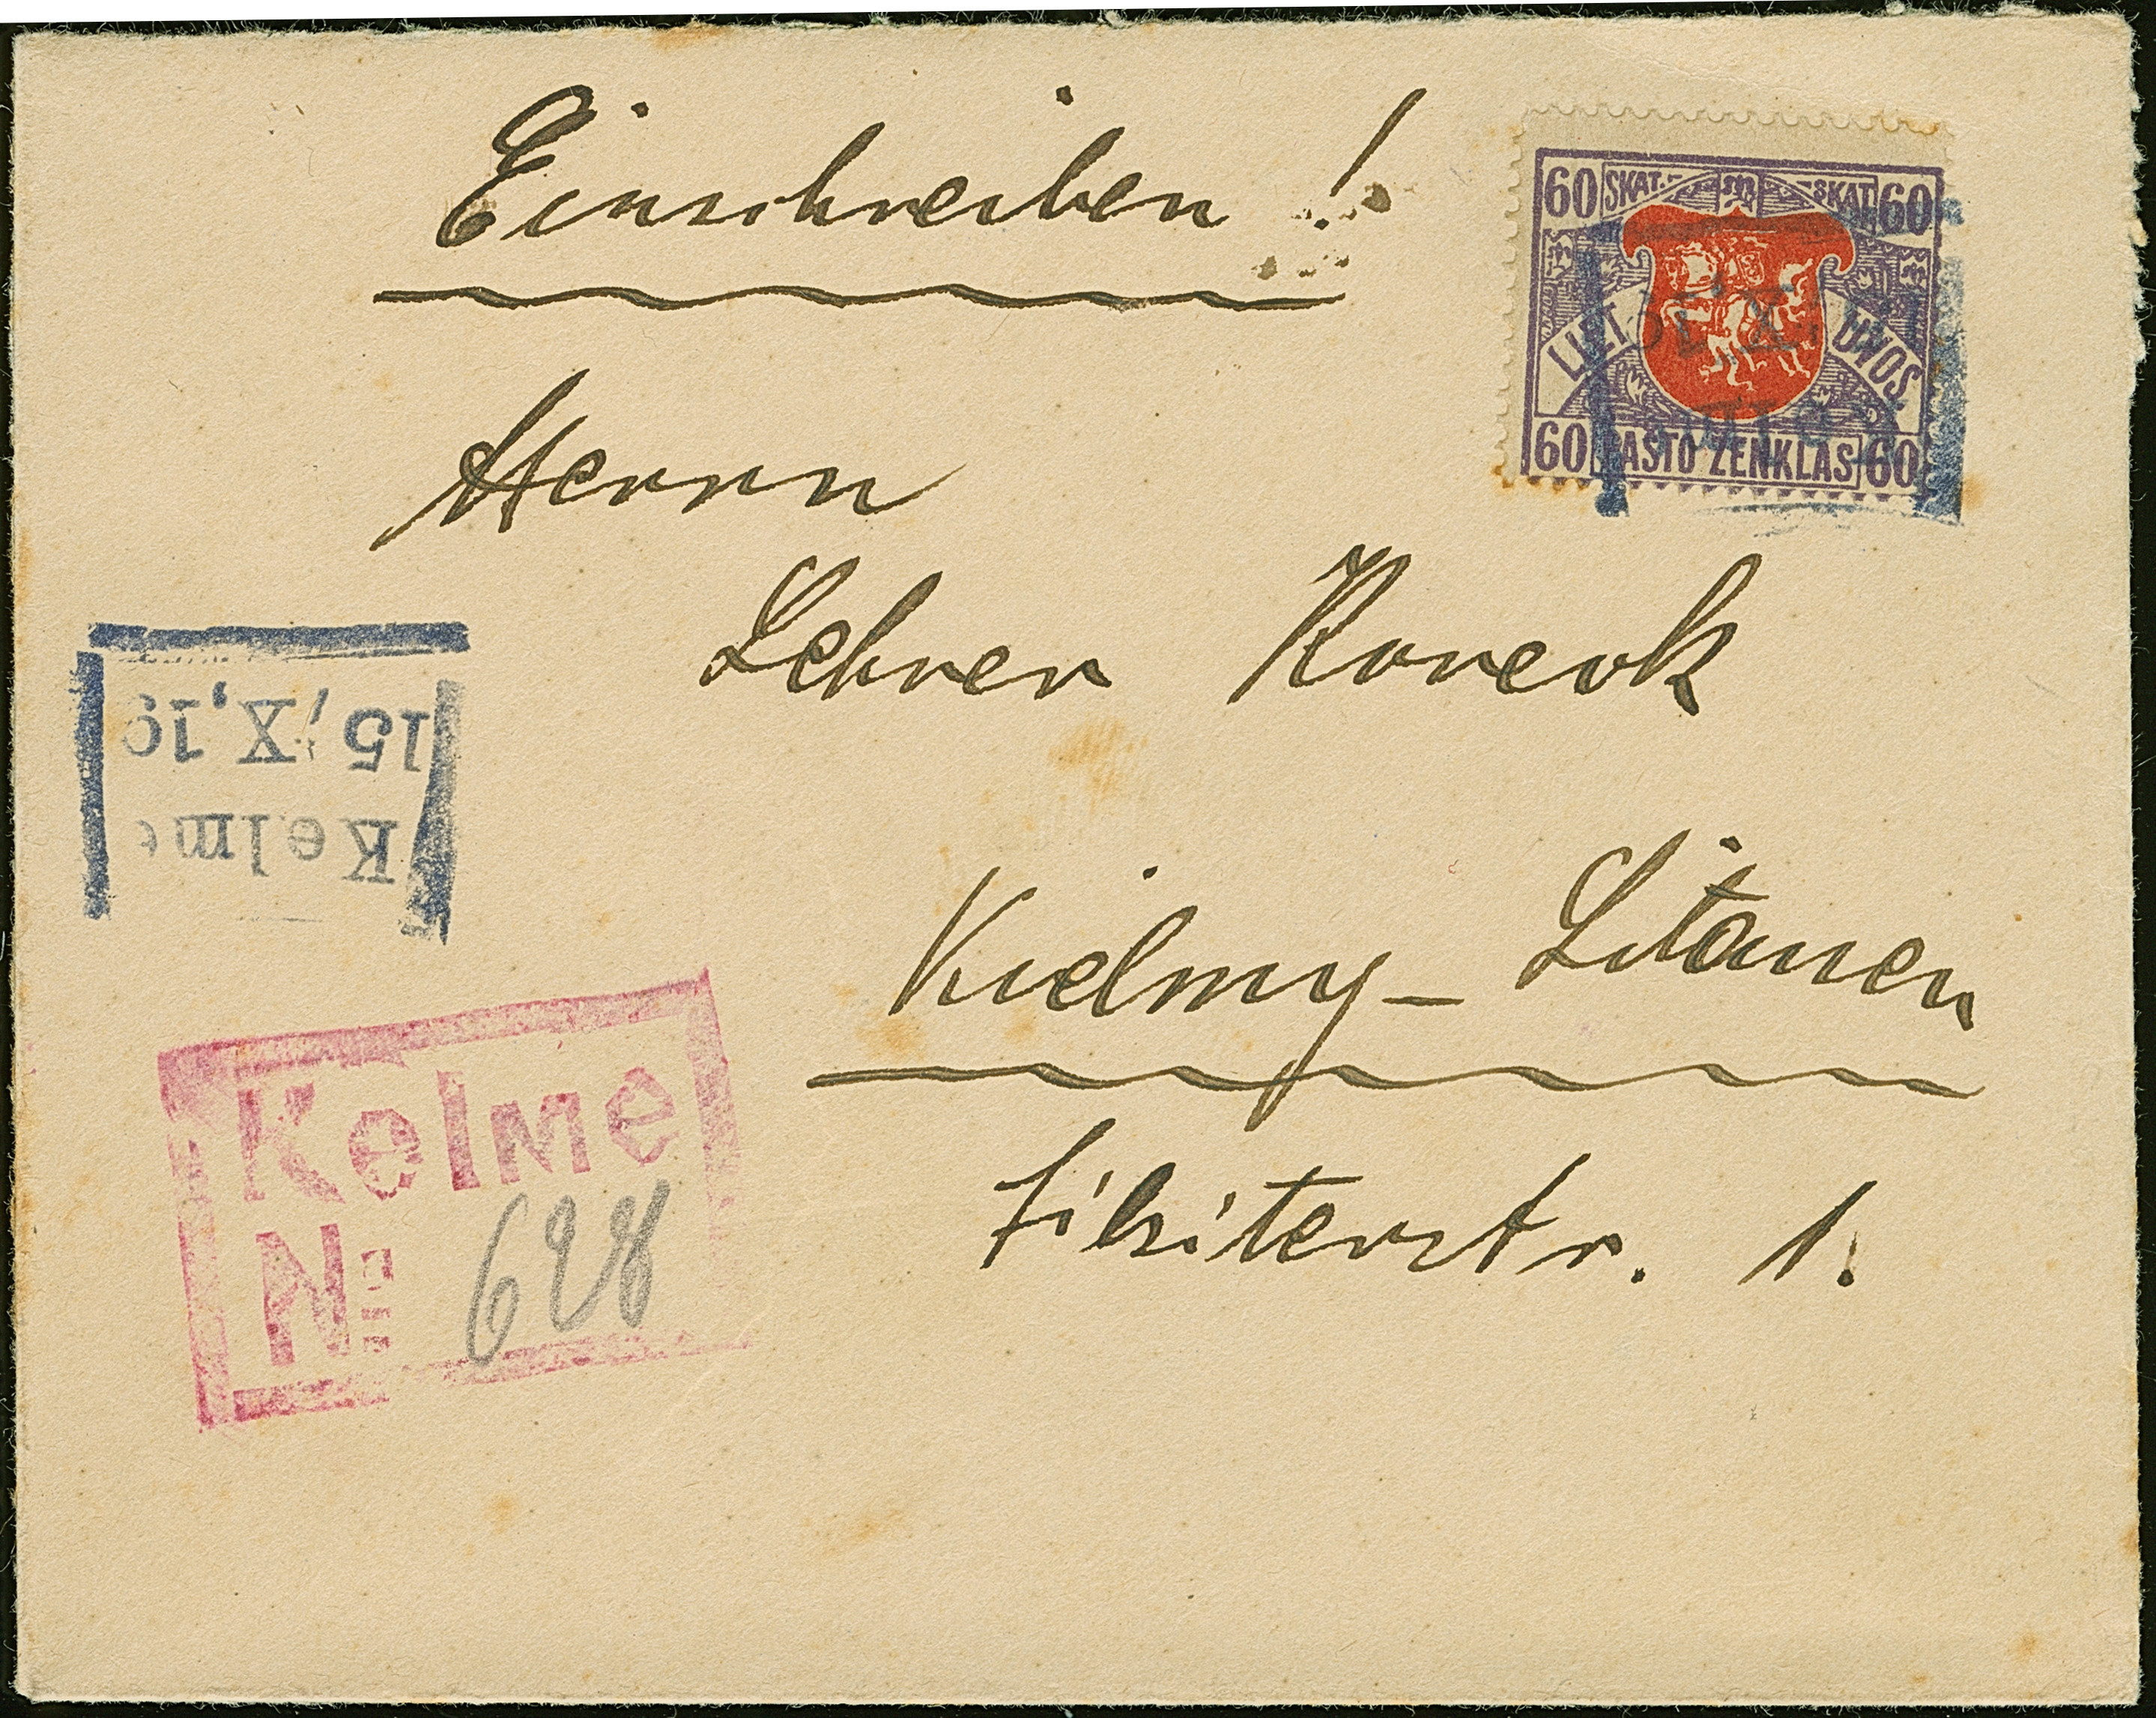 Einschreiben !
60 SKAT. SKAT 60
LIET UVOS.
60 PASTO ZENKLAS 60
Herrn
Lehrer
15, X, 19
Kelme
Kielmy - Litauen
Kelme
Nº 628
Tilsiterstr. 1.